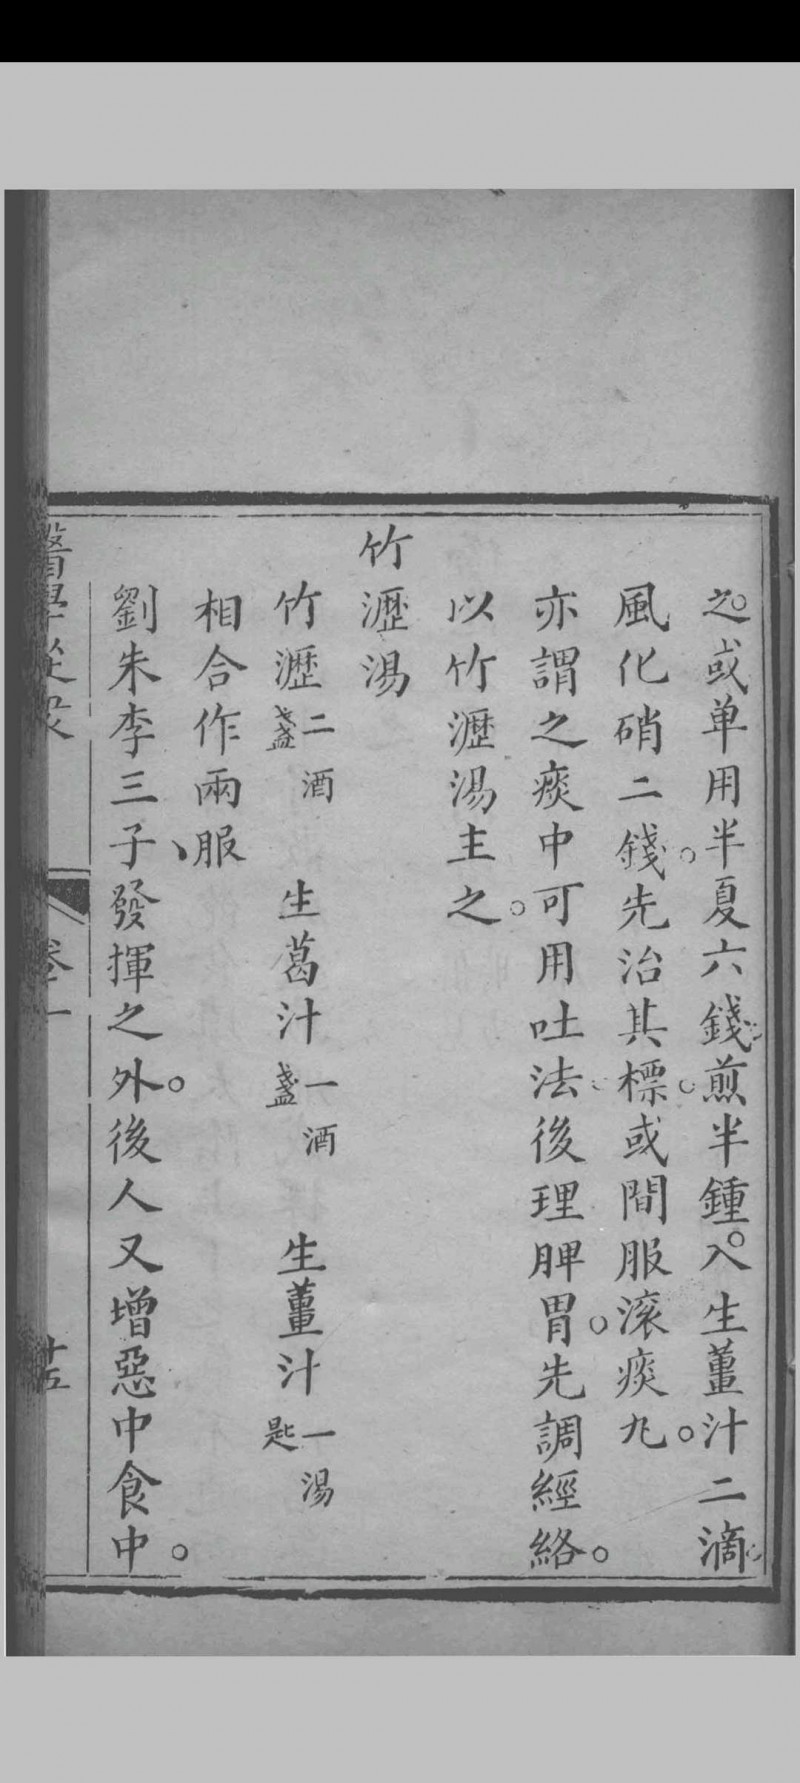 之。或单用半夏六錢。煎半鍾。入生薑汁二滴。
風化硝二錢。先治其標。或間服滚痰丸。
亦謂之痰中可用吐法。後理脾胃。先調經絡。
以竹瀝湯主之。
竹瀝湯
竹瀝二酒盞 生葛汁一酒盞 生薑汁一湯匙
相合作兩服
劉朱李三子發揮之外。後人又增惡中食中。
醫學從衆 卷一 十五